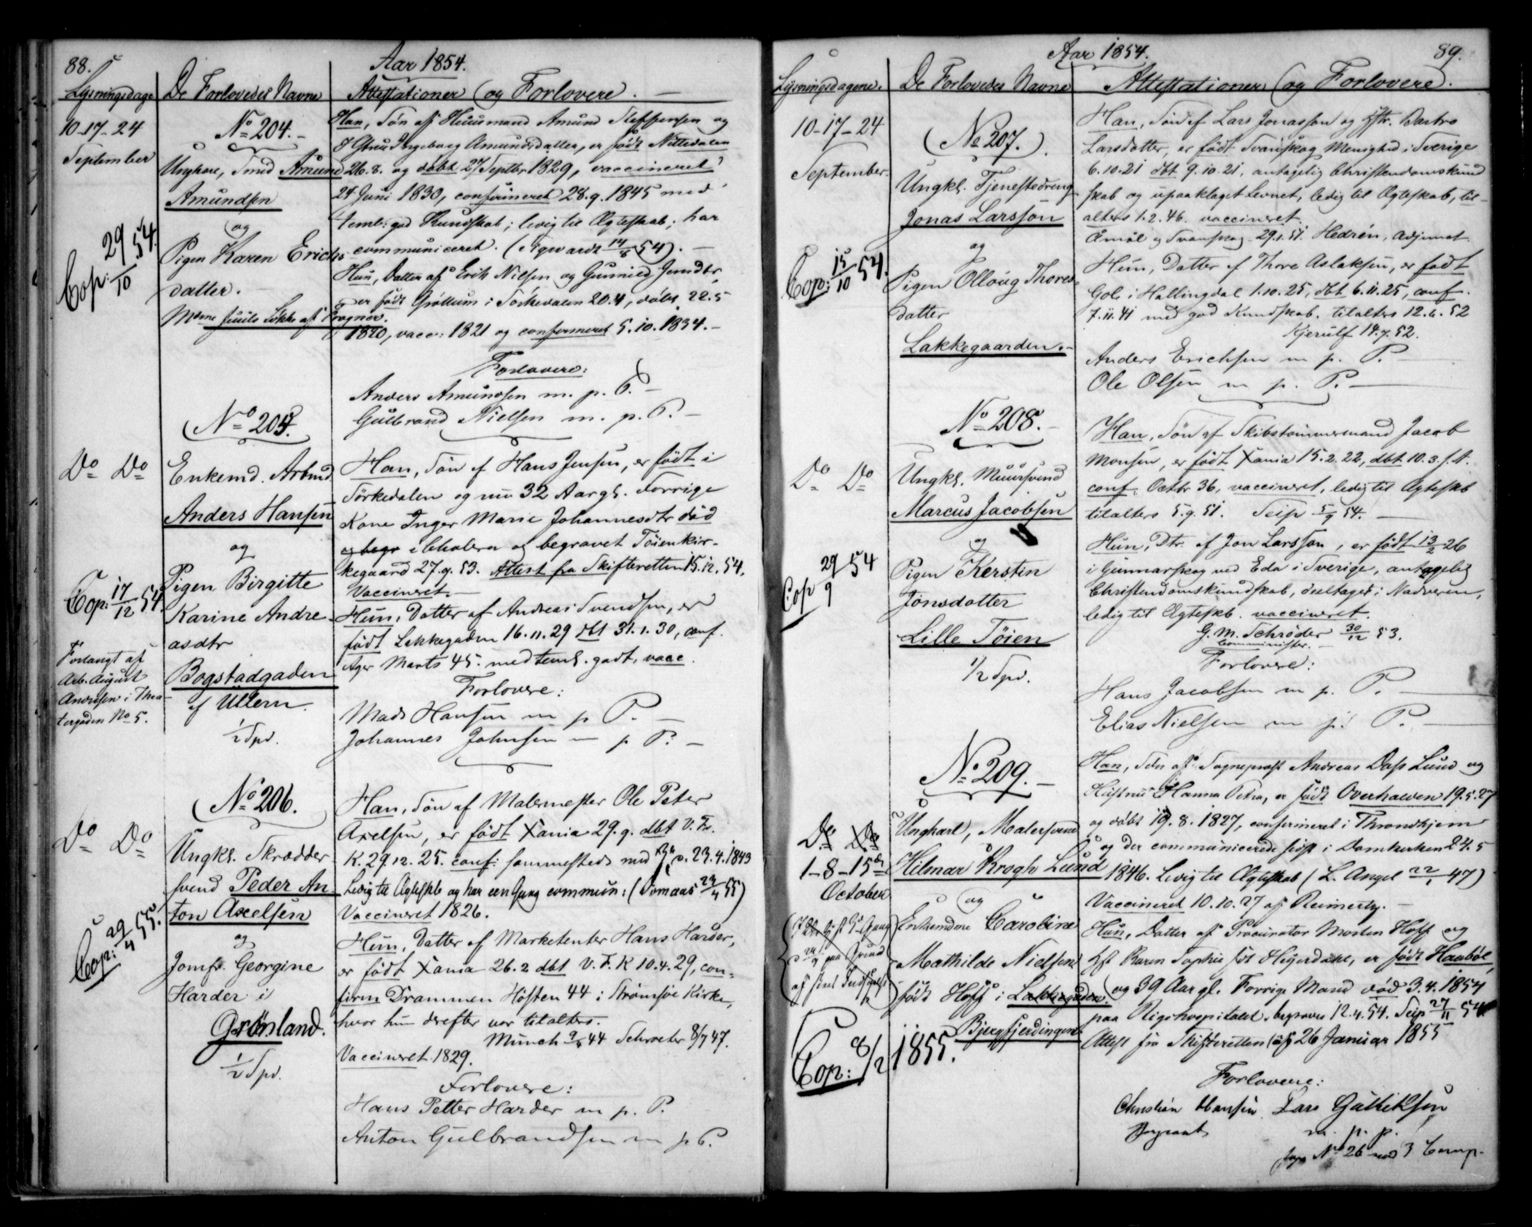 88.
Aar 1854.
Lysningsdage
De Forlovedes Navne
Attestationer og Forlovere.
10-17-24
September
No 204.
Ungkarl, Smed Amund
Amundsen
og
Pigen Karen Erichs
datter.
Cop: 29/10 54.
Han, Søn af Huusmand Amund Steffensen og
Ingeborg Amundsdatter, er født Nittedalen
26.8. og døbt 27 Septbr 1829, vaccineret
24 Juni 1830, confirmeret 28.9.1845 med
Kundskab; ledig til Ægteskab; har
communiceret.
Hun, Datter af Erik Nielsen og Gunild
er født i Sørkedalen 20.4, døbt 22.5
1820, vacc: 1821 og confirmeret 5.10.1834.
Forlovere:
Anders Amundsen m. p. P.
Gulbrand Nielsen m. p. P.
No 205.
Do Do
Enkemd. Arbmd.
Anders Hansen
og
Pigen Birgitte
Karine Andre-
asdtr
Bogstadgaden
af Ullern.
1/2 Spd.
Cop: 17/12 54
Forlangt af
Arb. August
Andersen i Thea-
tergaden No 5.
Han, Søn af Hans Jensen, er født i
Sørkedalen og nu 32 Aar gl. Forrige
Kone Inger Marie Johannesdtr død
i Cholera og begravet Tøienkir-
kegaard 27.9.53. Attest fra Skifteretten 15.12.54.
Vaccineret.
Hun, Datter af Andreas Svendsen, er
født Løkkegaden 16.11.29 dbt 31.1.30, conf.
Ager Marts 45. med temml. godt, vacc.
Forlovere:
Mads Hansen m p P.
Johannes Johnsen m p P.
No 206.
Do Do
Ungkl. Skrædder-
svend Peder An-
ton Axelsen
og
Jomfr. Georgine
Harder i
Grønland.
1/2 Spd.
Cop: 29/4 55.
Han, Søn af Malermester Ole Peter
Axelsen, er født Xania 29.9. dbt V. Fr.
K. 29.12.25. conf. sammesteds med 23.4.1843
Ledig til Ægteskb og har een Gang commun:
Vaccineret 1826.
Hun, Datter af Marketenter Hans Harder,
er født Xania 26.2 dbt V. F. K 10.4.29, con-
firm Drammen Høsten 44 i Strømsøe Kirke,
hvor hun derefter var tilalters.
Munch 44 Schroeter 8/7 47.
Vaccineret 1829.
Forlovere:
Hans Petter Harder m p. P.
Anton Gulbrandsen m p P.
Aar 1854.
89.
Lysningsdagene.
De Forlovedes Navne
Attestationer og Forlovere.
10-17-24
September.
No 207.
Ungkl. Tjenestedreng
Jonas Larsson
og
Pigen Olloug Thores-
datter
Løkkegaarden.
Cop: 15/10 54.
Han, Søn af Lars Jonasson og Hstr.
Larsdotter, er født Svanskog Menighed i Sverige
6.10.21 dbt 9.10.21, antagelig Christendomskund-
skab og upaaklaget Levnet, ledig til Ægteskab, til-
alters 1.2.46. vaccineret.
29.1.51. Hedrén, Adjunct
Hun, Datter af Thore Aslaksen, er født
Gol i Hallingdal 1.10.25, dbt 6.11.25, conf.
7.11.41 med god Kundskab. tilalters 12.6.52
Kjerulf 14.7.52.
Anders Erichsen m p. P.
Ole Olsen m p. P.
No 208.
Do Do
Ungkl. Muursvend
Marcus Jacobsen
og
Pigen Kerstin
Jonsdotter
Lille Tøien
1/2 Spd.
Cop 29/9 54
Han, Søn af Skibstømmermand Jacob
Monsen, er født Xania 15.2.22, dbt. 10.3.s.A.
conf. Octbr 36, vaccineret, ledig til Ægteskb
tilalters 5.9.51. Seip 5/9 54.
Hun, Dtr. af Jon Larsson, er født 13/2 26
i Gunnarskog ved Eda i Sverige, antagelig
Christendomskundskab, deeltaget i Nadveren,
ledig til Ægteskb. vaccineret
G. M. Schrøder 30/12 53.
Comminister.
Forlovere:
Hans Jacobsen m p. P.
Elias Nielsen m p. P.
No 209.
Do Do
1-8-15de
October
Ungkarl, Malersvend
Hilmar Krogh Lund
og
Enkemadame Carobine
Mathilde Nielsen
født Hoff i Løkkegaden
Bjergfjerdingen
Cop: 8/2 1855.
Han, Søn af Sogneprest Andreas Dass Lund og
Hustru Hanna Petra, er født Overhalven 19.5.27
og døbt 19.8.1827, confirmeret i Throndhjem
og der communicerede sidst i Domkirken 24.5
1846. Ledig til Ægteskab (L. Angel 22/1 47)
Vaccineret 10.10.27 af
Hun, Datter af Procurator Morten Hoff og
Karen Sophie født er født
og 39 Aar gl. Forrige Mand død 3.4.1854
paa Rigshospitalet, begravet 12.4.54. Seip 27/11 54
Attest fra Skifteretten af 26 Januar 1855
Forlovere:
Christian Hansen Lars Gulliksen
Sergeant m. p. p.
No 26 ved 3 Comp.